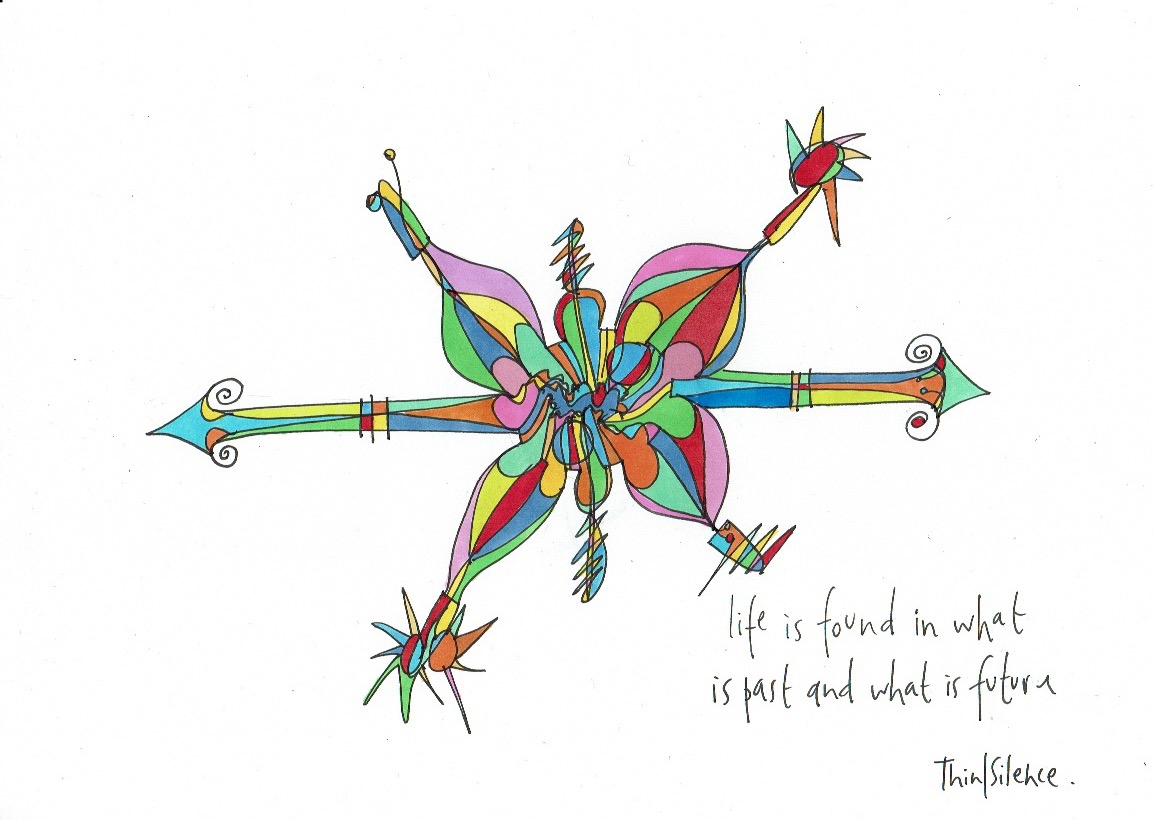 life is found in what
is past and what is future
Thin|Silence.